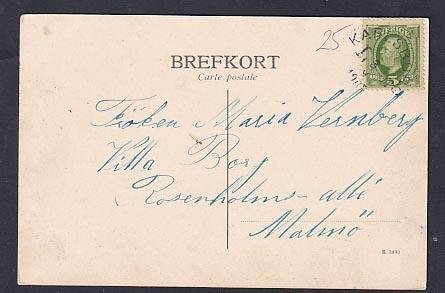 25
BREFKORT
Carte postale
5
Fröken Maria Vernberg
Villa Borg
Rosenholms-allé
Malmö